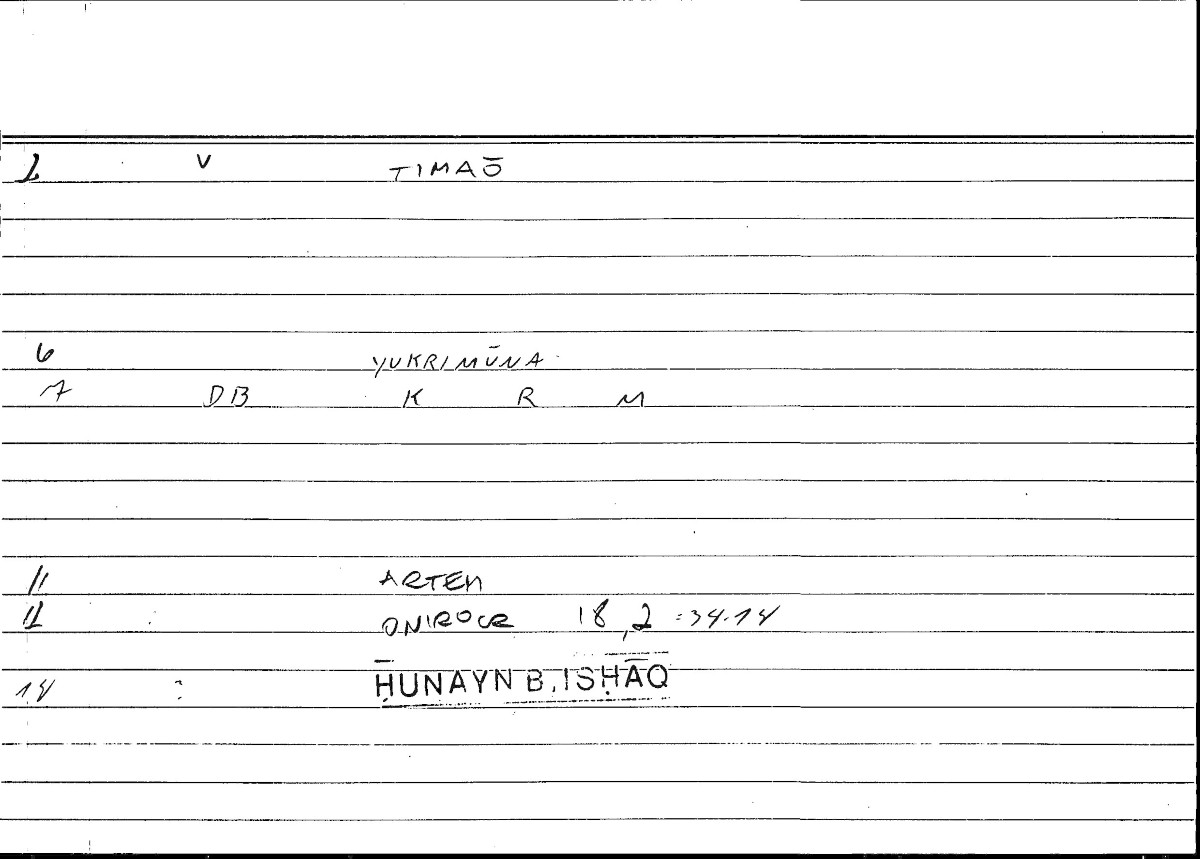 1 V TIMAŌ
6 YUKRIMŪNA
7 DB K R M
11 ARTEM
12 ONIROCR 18,2 :34.14
14 : ḤUNAYN B. ISḤĀQ